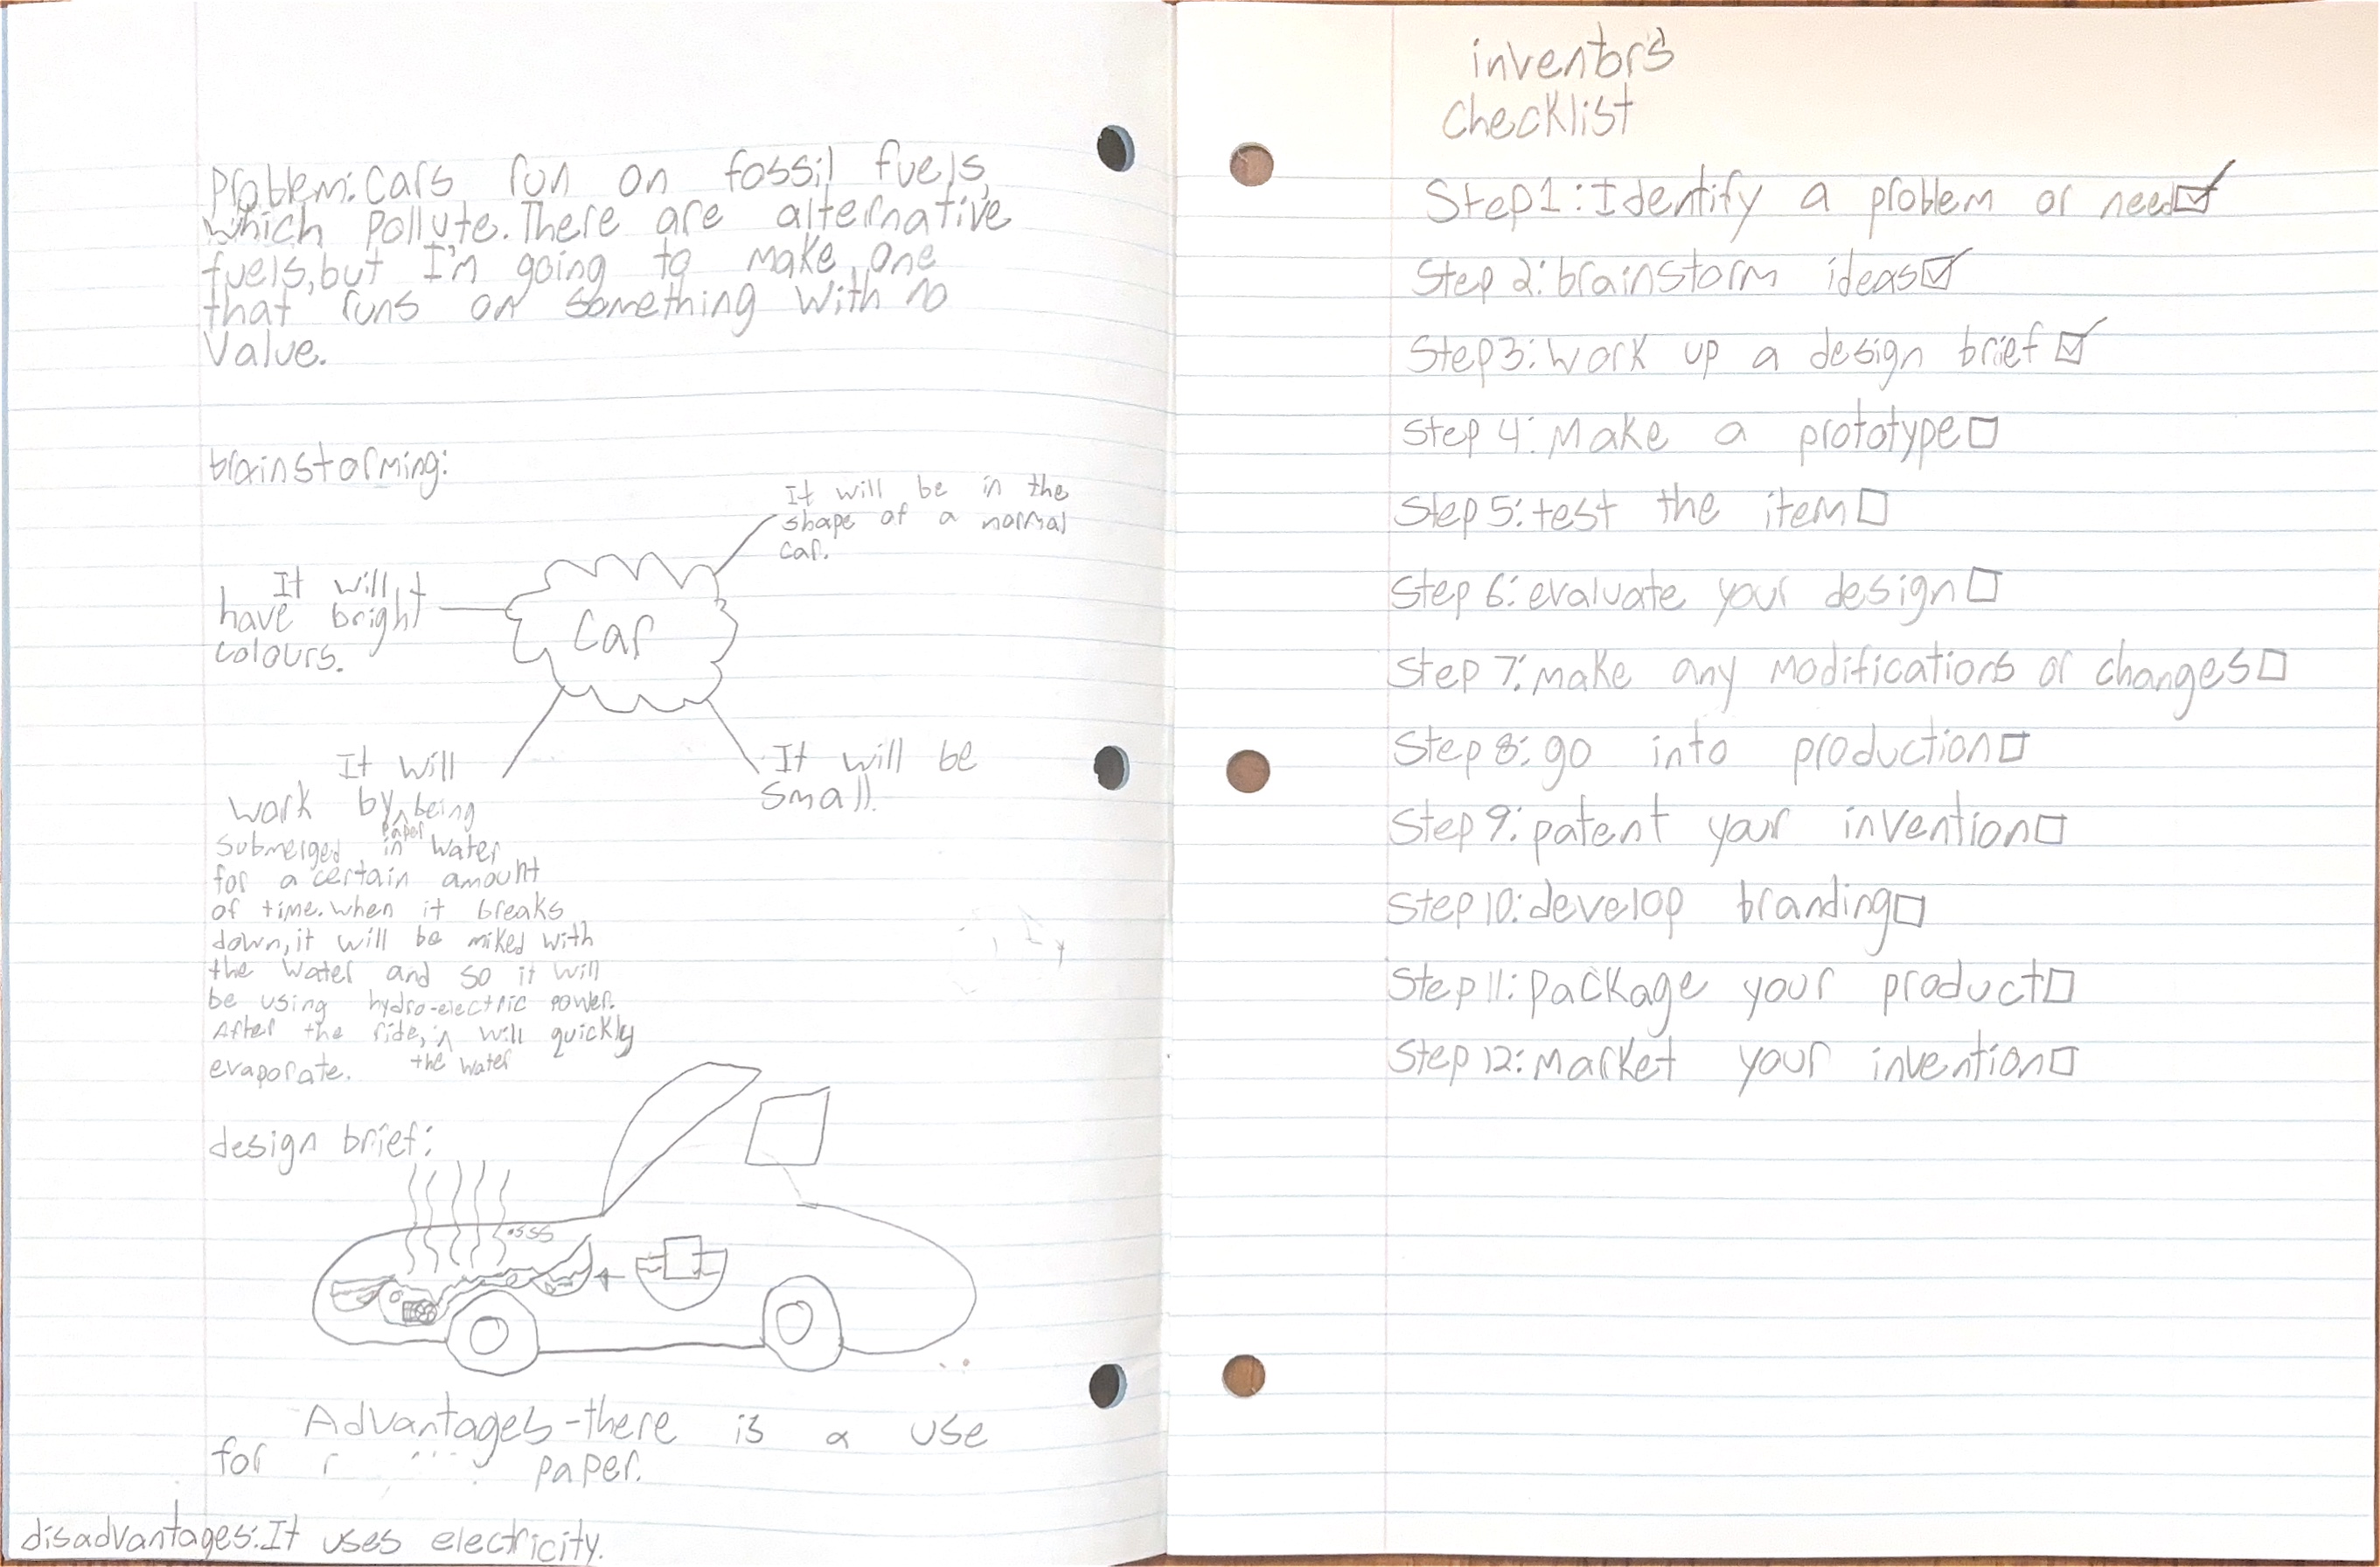 Problem: Cars run on fossil fuels,
which pollute. There are alternative
fuels, but I'm going to make one
that runs on something with no
Value.
brainstorming:
It will be in the
shape of a normal
car.
It will
have bright
colours.
Car
It will
work by paper being
submerged in water
for a certain amount
of time. when it breaks
down, it will be miked with
the water and so it will
be using hydro-electric power.
After the ride, the water will quickly
evaporate.
It will be
small.
design brief:
Advantages-there is a use
for paper.
disadvantages: It uses electricity.
inventors
checklist
Step 1: Identify a problem or need
Step 2: brainstorm ideas
Step 3: work up a design brief
Step 4: Make a prototype
Step 5: test the item
Step 6: evaluate your design
Step 7: make any modifications or changes
Step 8: go into production
Step 9: patent your invention
Step 10: develop branding
Step 11: package your product
Step 12: market your invention